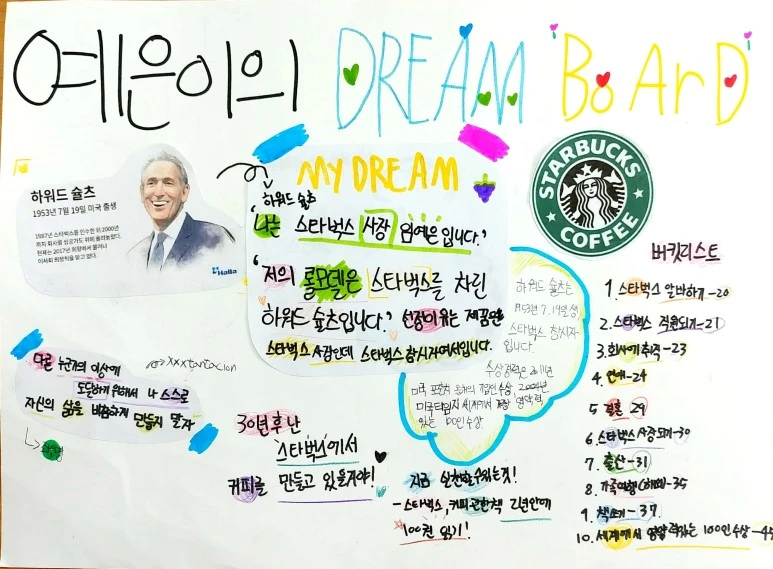 예은이의 DREAM BoArD
하워드 슐츠
1953년 7월 19일 미국 출생
1987년 스타벅스를 인수한 뒤 2000년
까지 회사를
현재는 2017년
이사회 의장직을 맡고 있다.
Halla
MY DREAM
하워드 슐츠
'나는 스타벅스 사장 임예은입니다.'
'저의 롤모델은 스타벅스를 차린
하워드 슐츠입니다.' 선정이유는 제 꿈은
스타벅스 사장인데 스타벅스 창시자여서입니다.
STARBUCKS
COFFEE
하워드 슐츠는
1953년 7.19일생
스타벅스 창시자
입니다.
수상경력은 2011년
미국 포춘지 올해의 기업인 수상, 2004년
미국 타임지 세계에서 가장 영향력
있는 100인 수상
다른 누군가의 이상에
도달하기 위해서 나 스스로
자신의 삶을 비참하게 만들지 말자
xxxtentacion
30년 후 난
'스타벅스'에서
커피를 만들고 있을거야!
지금 실천할 수 있는 것!
- 스타벅스, 커피 관한 책 2년 안에
100권 읽기!
버킷리스트
1. 스타벅스 알바하기-20
2. 스타벅스 직원되기-21
3. 회사에 취직-23
4. 연애-24
5. 결혼 29
6. 스타벅스 사장되기-30
7. 출산-31
8. 가족여행(해외)-35
9. 책쓰기-37.
10. 세계에서 영향력있는 100인 수상-45